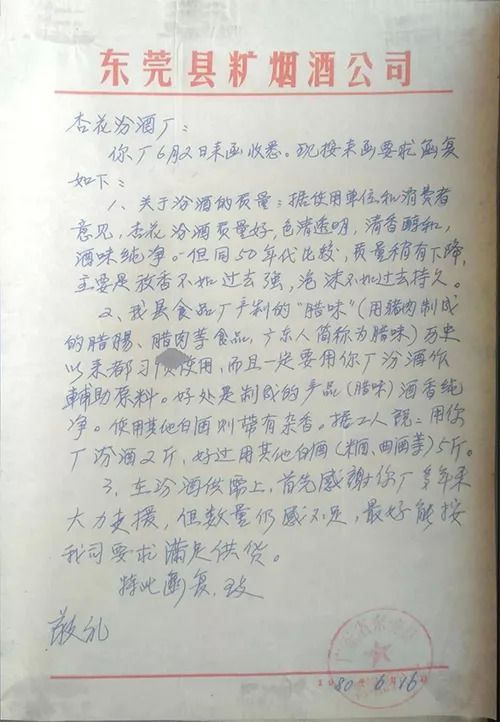 东莞县糖烟酒公司
杏花汾酒厂：
你厂6月2日来函收悉。现按来函要求函复
如下：
1、关于汾酒的质量：据使用单位和消费者
意见，杏花汾酒质量好，色清透明，清香醇和，
酒味纯净。但同50年代比较，质量稍有下降，
主要是放香不如过去强，泡沫不如过去持久。
2、我县食品厂产制的"腊味"（用猪肉制成
的腊腸、腊肉等食品，广东人简称为腊味）历史
以来都习惯使用，而且一定要用你厂汾酒作
輔助原料。好处是制成的产品（腊味）酒香纯
净。使用其他白酒则带有杂香。据工人説：用你
厂汾酒2斤，好过用其他白酒（米酒、曲酒等）5斤。
3、在汾酒供需上，首先感謝你厂多年来
大力支援，但数量仍感不足，最好能按
我司要求满足供货。
特此函复，致
敬礼
1980年6月16